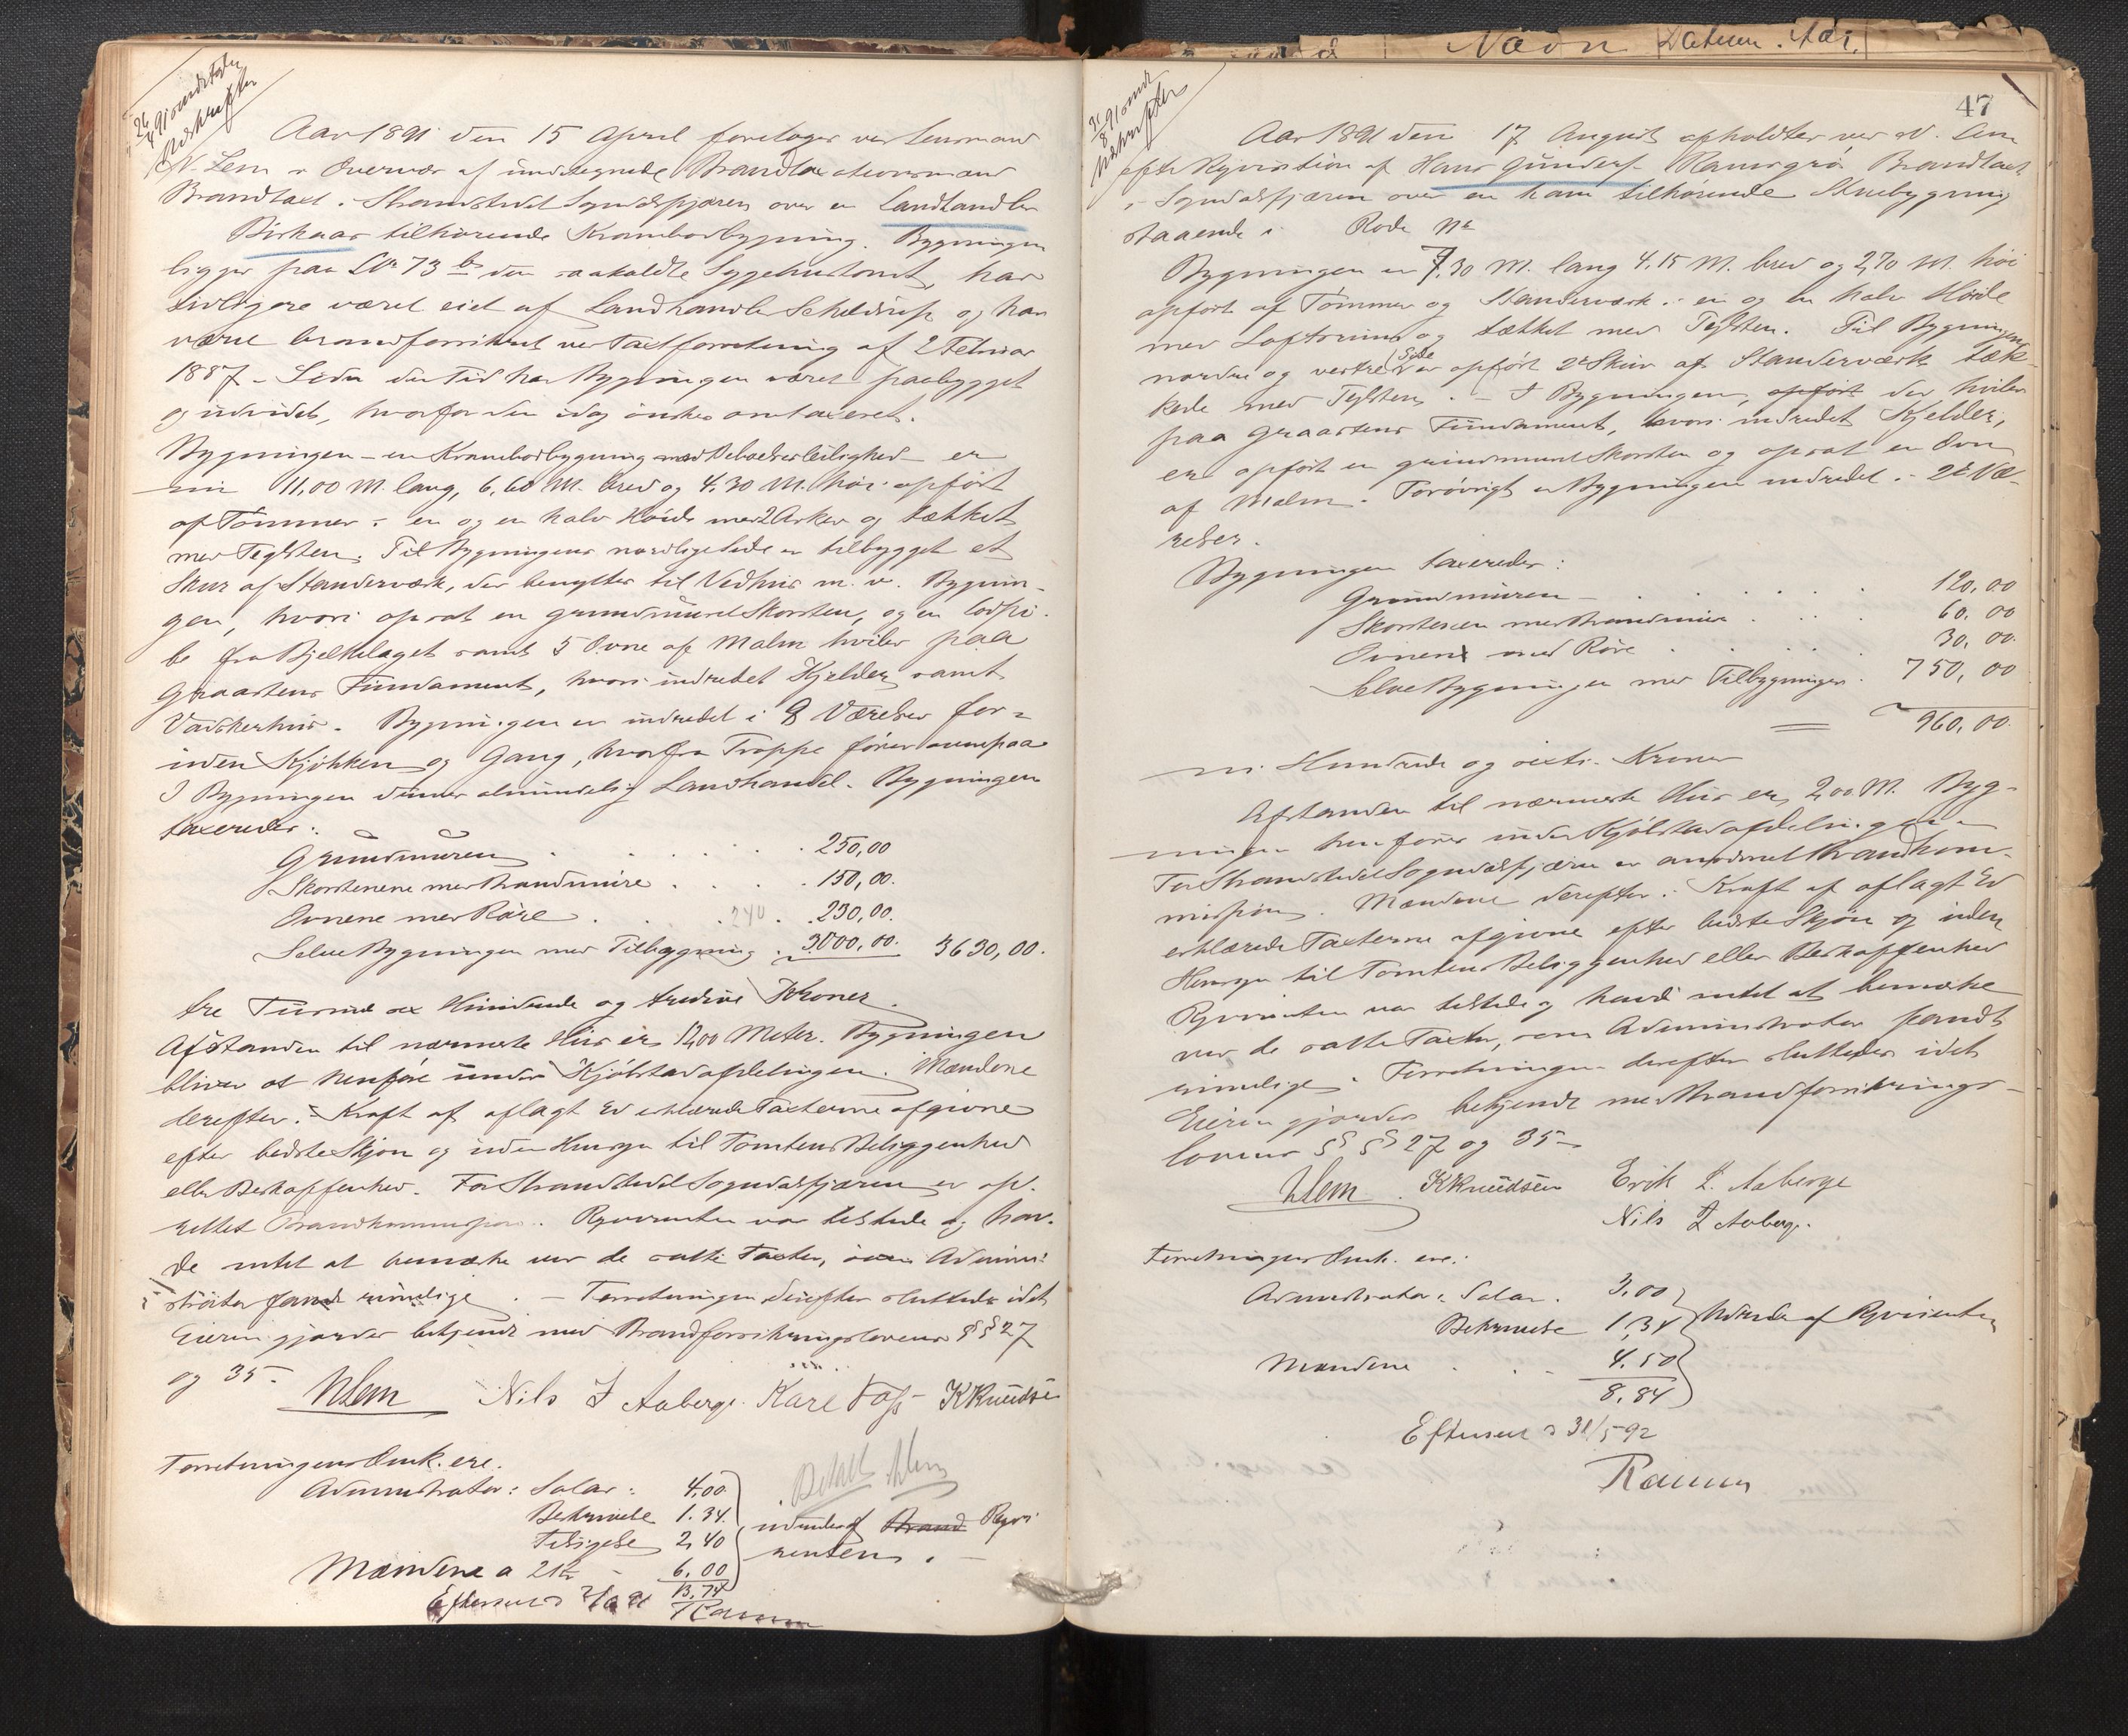 26/4 91 omdstædn
Udskrifter
Aar 1891 den 15 April foretoges ved Lensmand
N. Lem i Overvær af undertegnede Brandtaxationsmænd
Brandtaxt i Strandstedet Sogndalsfjæren over en Landhandler
Birkaas tilhørende Krambodbygning. Bygningen
ligger paa LNr 73 b den saakaldte Sygehustomt, har
tidligere været eiet af Landhandler Scheldrup og har
været brandforsikret ved Taxtforretning af 2 Februar
1887 - Siden den Tid har Bygningen været paabygget
og udvidet, hvorfor den idag ønskes omtaxeret.
Bygningen - en Krambodbygning med Beboelsesleilighed - er
11,00 M. lang, 6,60 M. bred og 4,30 M. høi opført
af Tømmer i en og en halv Høide med 2 Arker og tækket
med Teglsten. Til Bygningens nordlige Side er tilbygget et
Skur af Standerværk, der benyttes til Vedhus m. v. Bygnin-
gen, hvori opsat en grundmuret Skorsten, og en Lodpi-
be fra Bjelkelaget samt 5 Ovne af Malm hviler paa
Graastens Fundament, hvori indredet Kjelder samt
Vadskerhus. Bygningen er indredet i 8 Værelser for-
uden Kjøkken og Gang, hvorfra Trappe fører ovenpaa
I Bygningen drives almindelig Landhandel. Bygningen
taxeredes:
Grundmuren . . . . . . 250,00
Skorstenene med Brandmure . . . . 150,00.
Ovnene med Røre . . . 240 . . 230,00.
Selve Bygningen med Tilbygning . 3000,00. 3630,00.
tre Tusinde sex Hundrede og tredive Kroner.
Afstanden til nærmeste Hus er 12,00 Meter. Bygningen
bliver at henføre under Kjøbstadafdelingen. Mændene
derefter i Kraft af aflagt Ed erklærede Taxterne afgivne
efter bedste Skjøn og uden Hensyn til Tomtens Beliggenhed
eller Beskaffenhed. For Strandstedet Sogndalsfjæren er op-
rettet Brandkommission. Rqvirenten var tilstede og hav-
de intet at bemærke ved de satte Taxter, som Admini-
strator fandt rimelige. - Forretningen derefter sluttedes idet
Eieren gjordes bekjendt med Brandforsikringslovens §§ 27
og 35 -
NLem Nils J Aaberge. Karl Foss KKnudsen
Forretningens Omk. ere.
Administrator: Salær: 4,00
Bekrivelse 1.34.
Tilsigelse 2,40
Mændene a 2 Kr - 6,00
13,74
Betalt NLem
udredes af Brand Rqvi-
renten. -
Efterseet 2/6 91
Ramm
Nævn Datum. Aar.
47
31/8 91 omdr
Udskrifter
Aar 1891 den 17 August afholdtes ved N. Lem
efter Rqvisition af Hans Gunders. Hamregrø Brandtaxt
i Sogndalsfjæren over en ham tilhørende Stuebygning
staaende i Rode No
Bygningen er 7,30 M. lang 4.15 M. bred og 2,70 M. høi
opført af Tømmer og Standerværk i en og en halv Høide
med Loftsrum og tækket med Teglsten. Til Bygningens
nordre og vestre Side er opført 2de Skur af Standerværk tæk-
kede med Teglsten. - I Bygningen, opført der hviler
paa Graastens Fundament, hvori indredet Kjelder,
er opført en grundmuret Skorsten og opsat en Ovn
af Malm. Forøvrigt er Bygningen indredet i 2de Væ-
relser.
Bygningen taxeredes:
Grundmuren - . . . . . 120,00
Skorstenen med Brandmur . . . 60,00
Ovnen med Røre . . . . 30,00.
Selve Bygningen med Tilbygninger . 750,00
= 960,00.
ni Hundrede og sexti Kroner
Afstanden til nærmeste Hus er 2,00 M. Byg-
ningen henføres under Kjøbstadafdelingen.
For Strandstedet Sogndalsfjæren er anordnet Brandkom-
mission. Mændene derefter i Kraft af aflagt Ed
erklærede Taxterne afgivne efter bedste Skjøn og uden
Hensyn til Tomtens Beliggenhed eller Beskaffenhed
Rqvirenten var tilstede og havde intet at bemærke
ved de satte Taxter, som Administrator fandt
rimelige. Forretningen derefter sluttedes idet
Eieren gjordes bekjendt med Brandforsikrings-
lovens §§ 27 og 35 -
NLem. KKnudsen Erik L. Aaberge
Nils J Aaberge.
Forretningens Omk. ere:
Administrator: Salær. 3,00
Bekrivelse 1,34
Mændene . . . 4.50
8,84
Udredes af Rqvirenten
Efterseet 31/5 92
Ramm